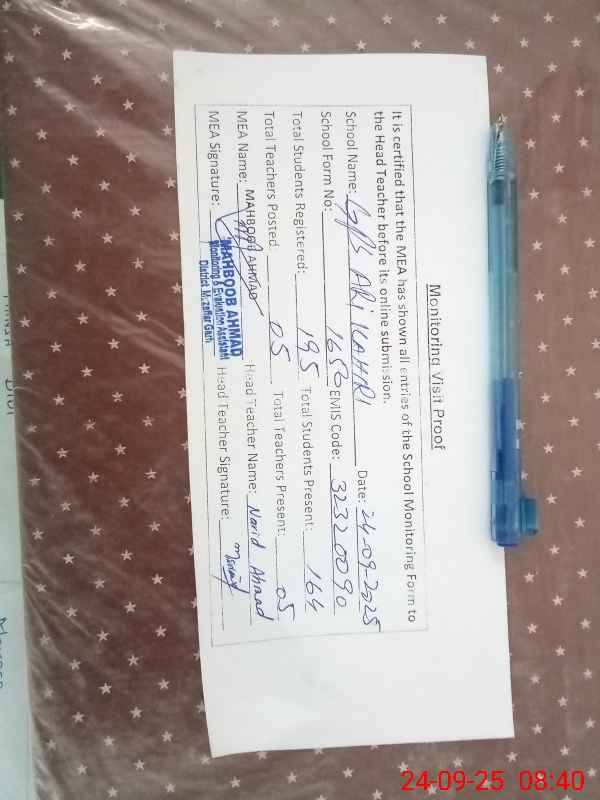 Monitoring Visit Proof
It is certified that the MEA has shown all entries of the School Monitoring Form to
the Head Teacher before its online submission.
School Name: ARi KAHIRI Date: 24-09-2025
School Form No: 1656 EMIS Code: 32320090
Total Students Registered: 195 Total Students Present: 164
Total Teachers Posted: 05 Total Teachers Present: 05
MEA Name: MAHBOOB AHMAD Head Teacher Name: Ahmad
MEA Signature: Head Teacher Signature:
MAHBOOB AHMAD
Monitoring & Evaluation Assistant
District Muzaffar Garh
24-09-25 08:40